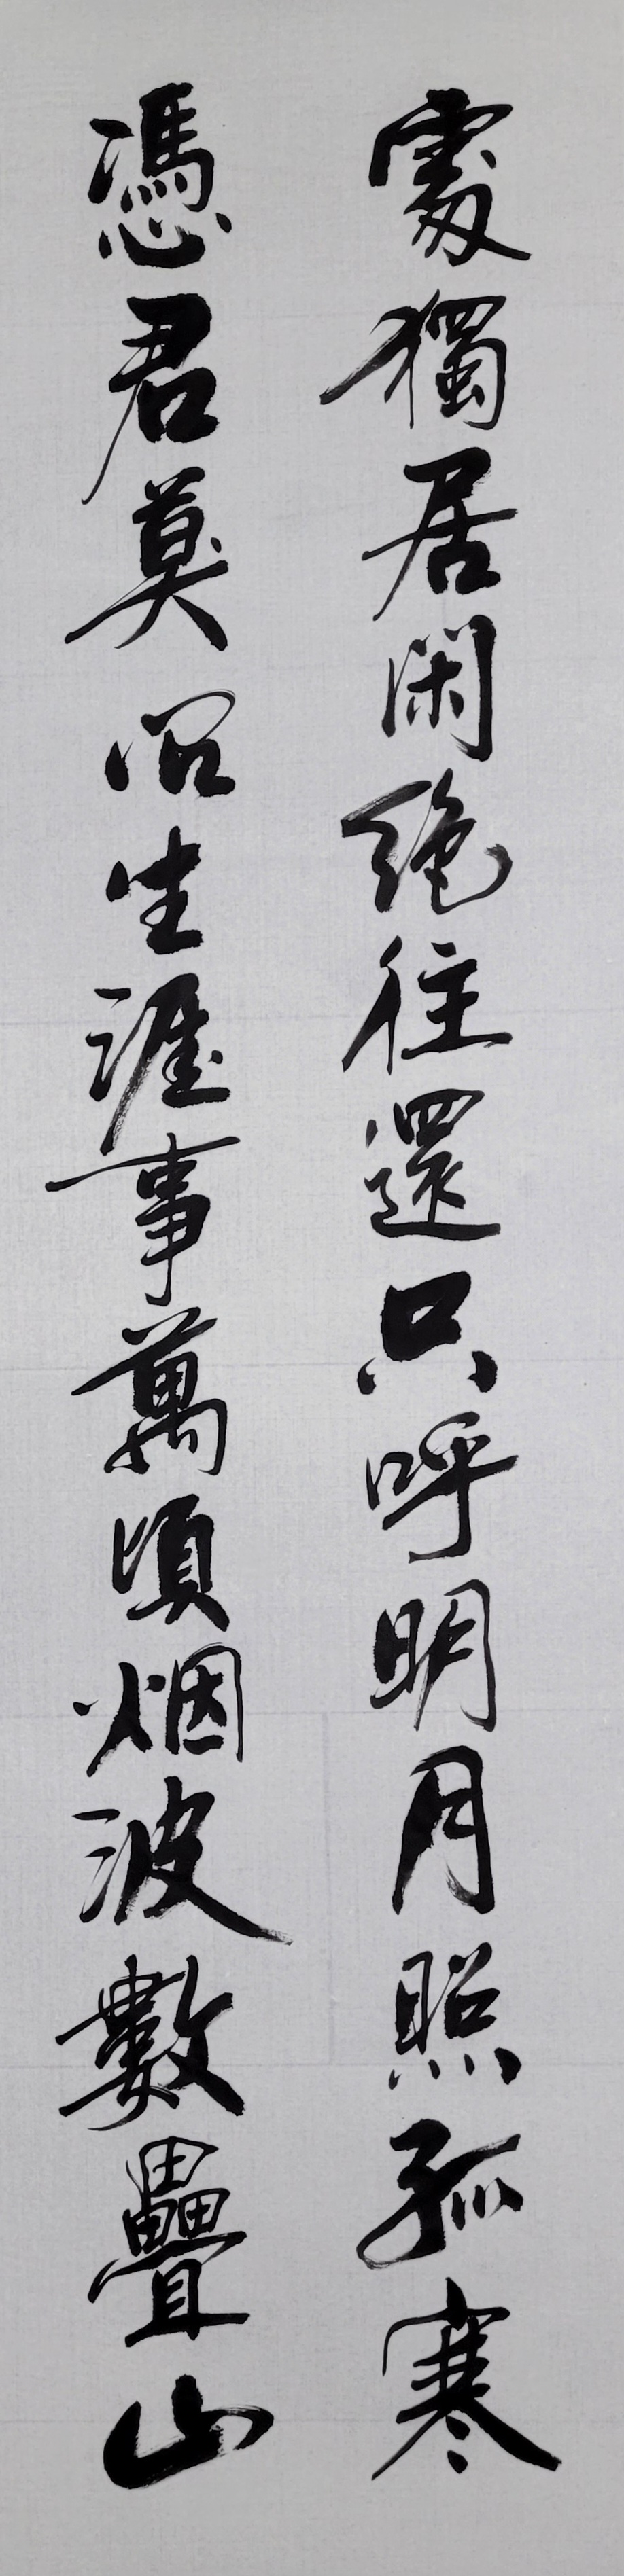 處獨居閑絕往還只呼明月照孤寒
憑君莫問生涯事萬頃烟波數疊山